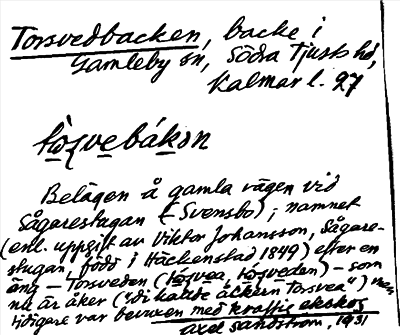 Torsvedbacken, backe i
Gamleby sn, Södra Tjusts hd,
Kalmar l. 27
tòʂvebákən
Belägen å gamla vägen vid
Sågarestugan (= Svensbo); namnet
(enl. uppgift av Viktor Johansson, Sågare-
stugan, född i Häckenstad 1849) efter en
äng — Torsveden (tòʂvea, tòʂveden) — som
nu är åker ("di kallde åckern Torsvea") men
tidigare var bevuxen med kraftig ekskog
Axel Sandström, 1931